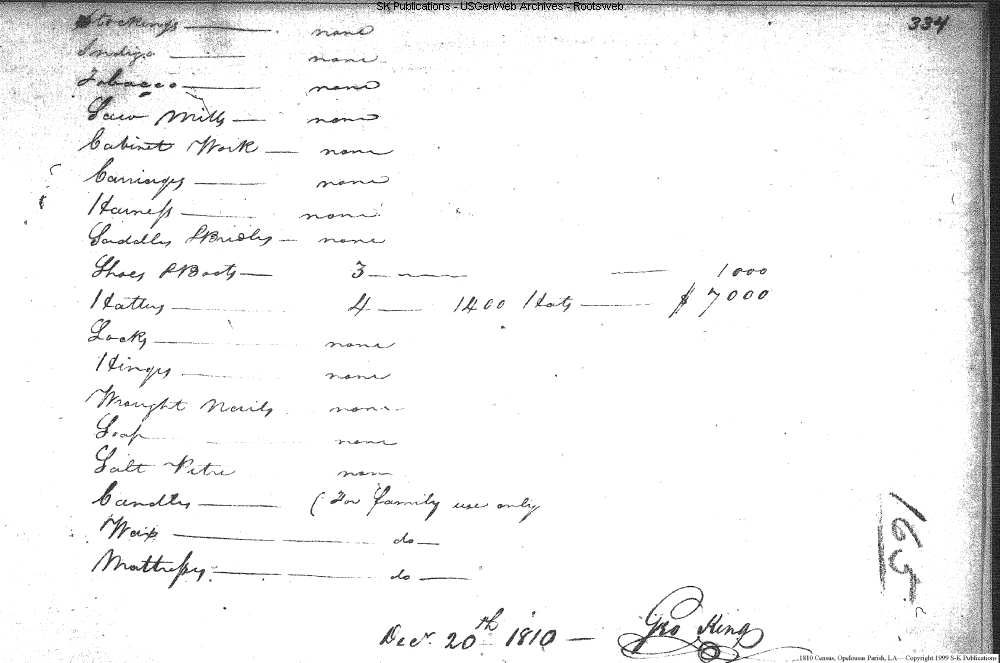 SK Publications - USGenWeb Archives - Rootsweb
334
Stockings — none
Indigo — none
Tobacco — none
Saw Mills — none
Cabinet Work — none
Carriages — none
Harness — none
Saddles & Bridles — none
Shoes & Boots — 3 — — 1000
Hatters — 4 — 1400 Hats — $ 7000
Locks — none
Hinges — none
Wrought Nails none
Soap none
Salt Petre none
Candles — ( For family use only
Wax — do —
Mattresses — do —
165
Decr. 20th 1810 — Geo King
1810 Census, Opelousas Parish, LA -- Copyright 1999 S-K Publications